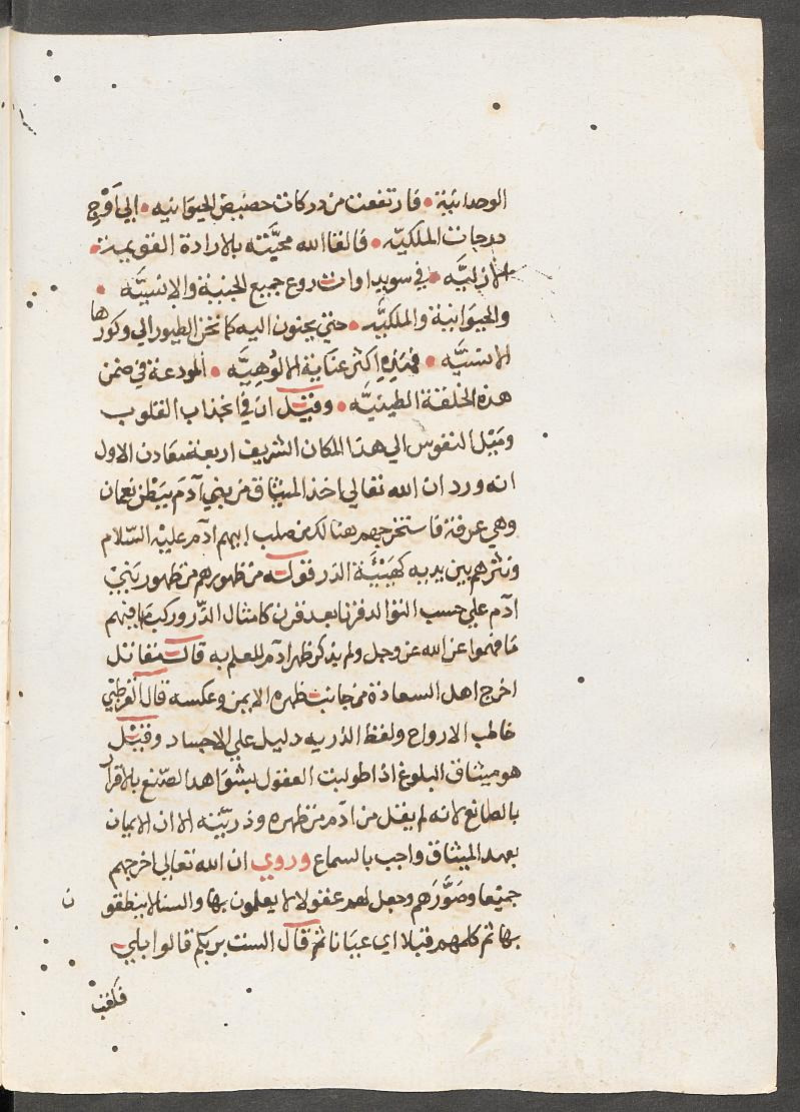 الوحدانية • فارتفعت من دركات حضيض الحيوانيه • الي أوج
درجات الملكيّه • فالقا الله محبّته بالارادة القويمية •
الازليّه • في سويداوات روع جميع الجنية والإنسيّه •
والحيوانية والملكيّه • حتي يحنون اليه كما تحن الطيور الي وكورها
الانسيّه • فهذه اكثر عناية الالوُهِيَّه • المودعة في ضمن
هذه الخلقة الطينيّه • وقيل ان في انجذاب القلوب
وميل النفوس الي هذا المكان الشريف اربعة معادن الاول
انه ورد ان الله تعالي اخذ الميثاق من بني آدم ببطن نعمان
وهي عرفة فاستخرجهم هنالك من صلب ابيهم ادم عليه السّلام
ونثرهم بين يديه كهيئة الذر فقوله من ظهورهم من ظهور بني
ادم علي حسب التوالد قرنا بعد قرن كامثال الذّر وركب فيهم
ما فهموا عن الله عز وجل ولم يذكر ظهر ادم للعلم به قال مقاتل
اخرج اهل السعادة من جانب ظهره الايمن وعكسه قال القرطبي
خاطب الارواح ولفظ الذريه دليل علي الاجساد وقيل
هو ميثاق البلوغ اذا طولبت العقول بشواهد الصّنع بالاقرار
بالصانع لانه لم يقل من ادم من ظهره وذريّته الا ان الايمان
بعهد الميثاق واجب بالسماع وروي ان الله تعالي اخرجهم
جميعا وصَوَّرَهم وجعل لهم عقولا يعلمون بها والسنا ينطقو ن
بها ثم كلمهم قبلا اي عيانا ثم قال الست بربكم قالوا بلي
فكتب